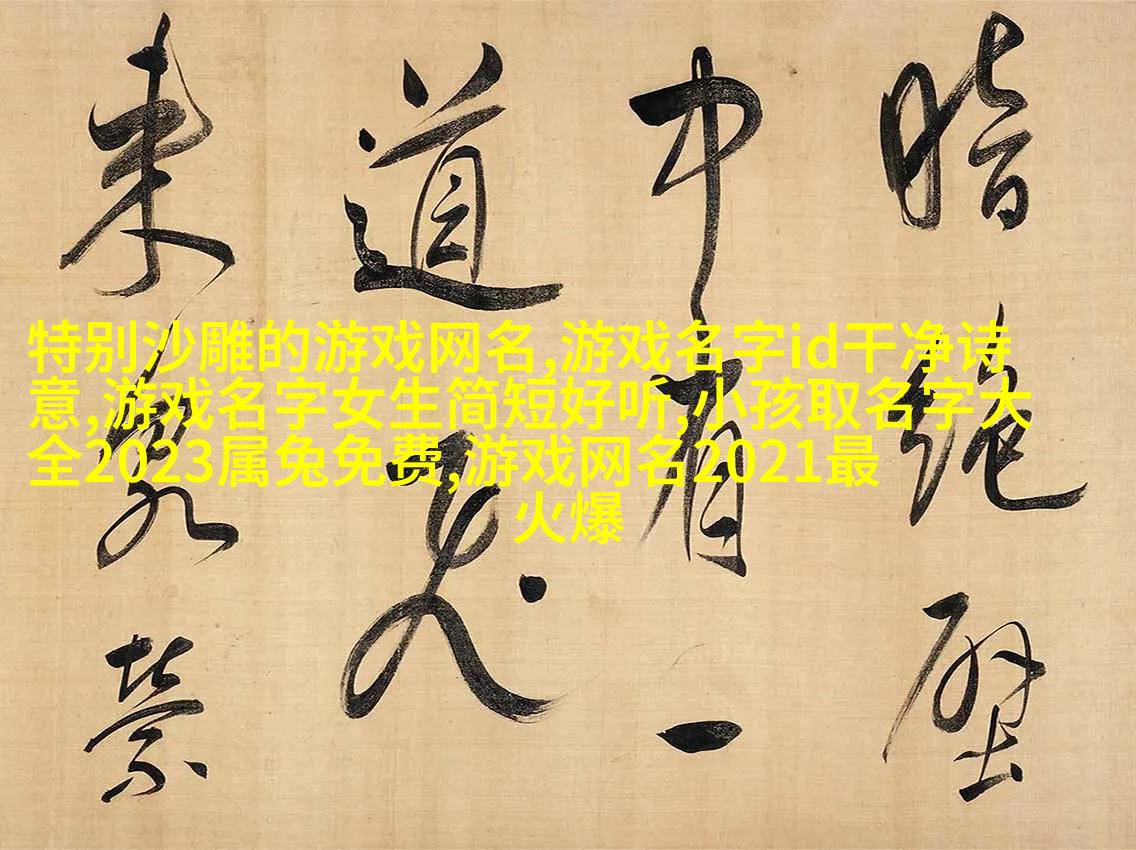 特别沙雕的游戏网名,游戏名字id干净诗
意,游戏名字女生简短好听,小孩取名字大
全2023属兔免费,游戏网名2021最
火爆
暗絶壁
中有一
道
来